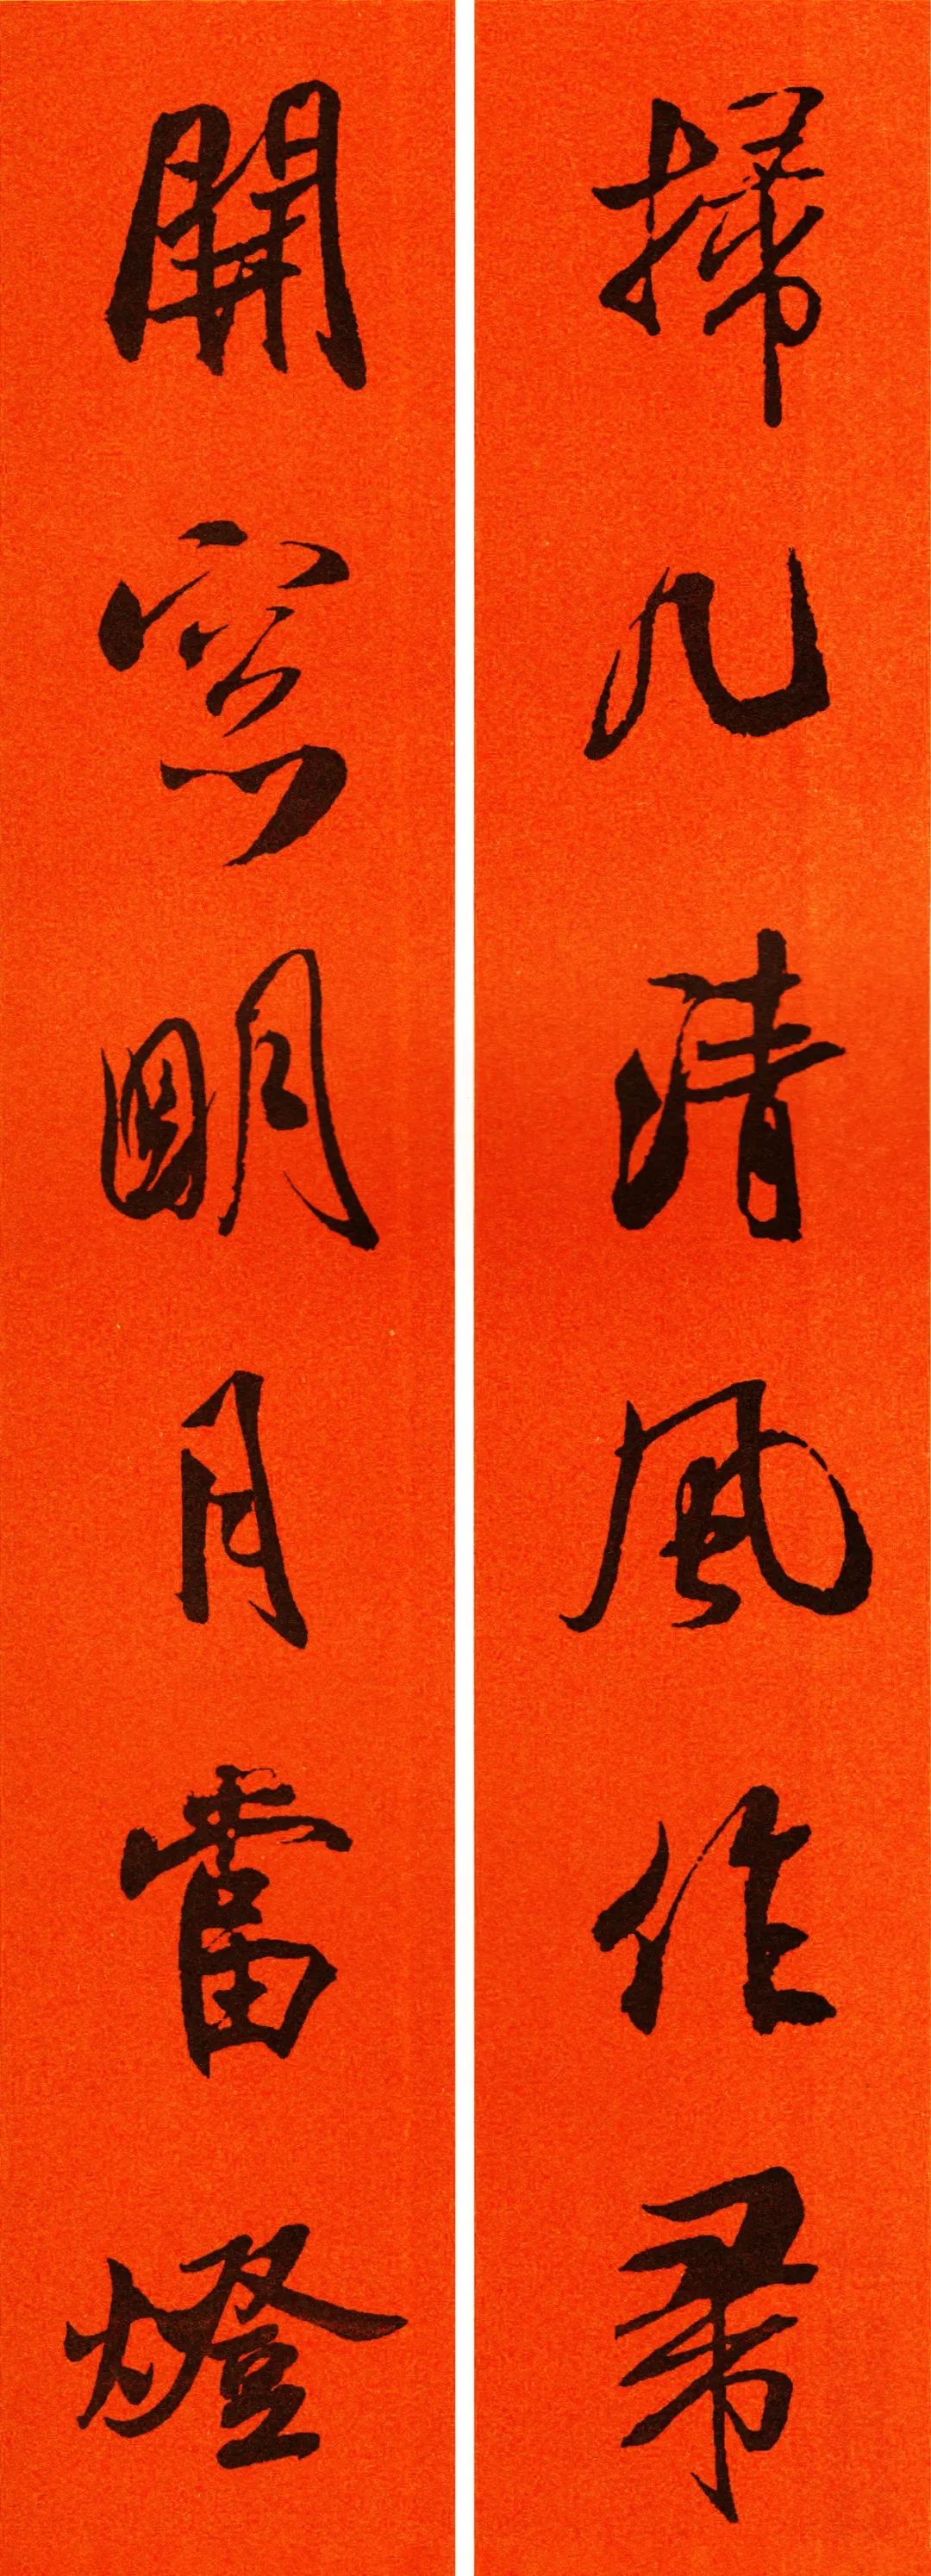 掃几清風作帚
開窓明月當燈